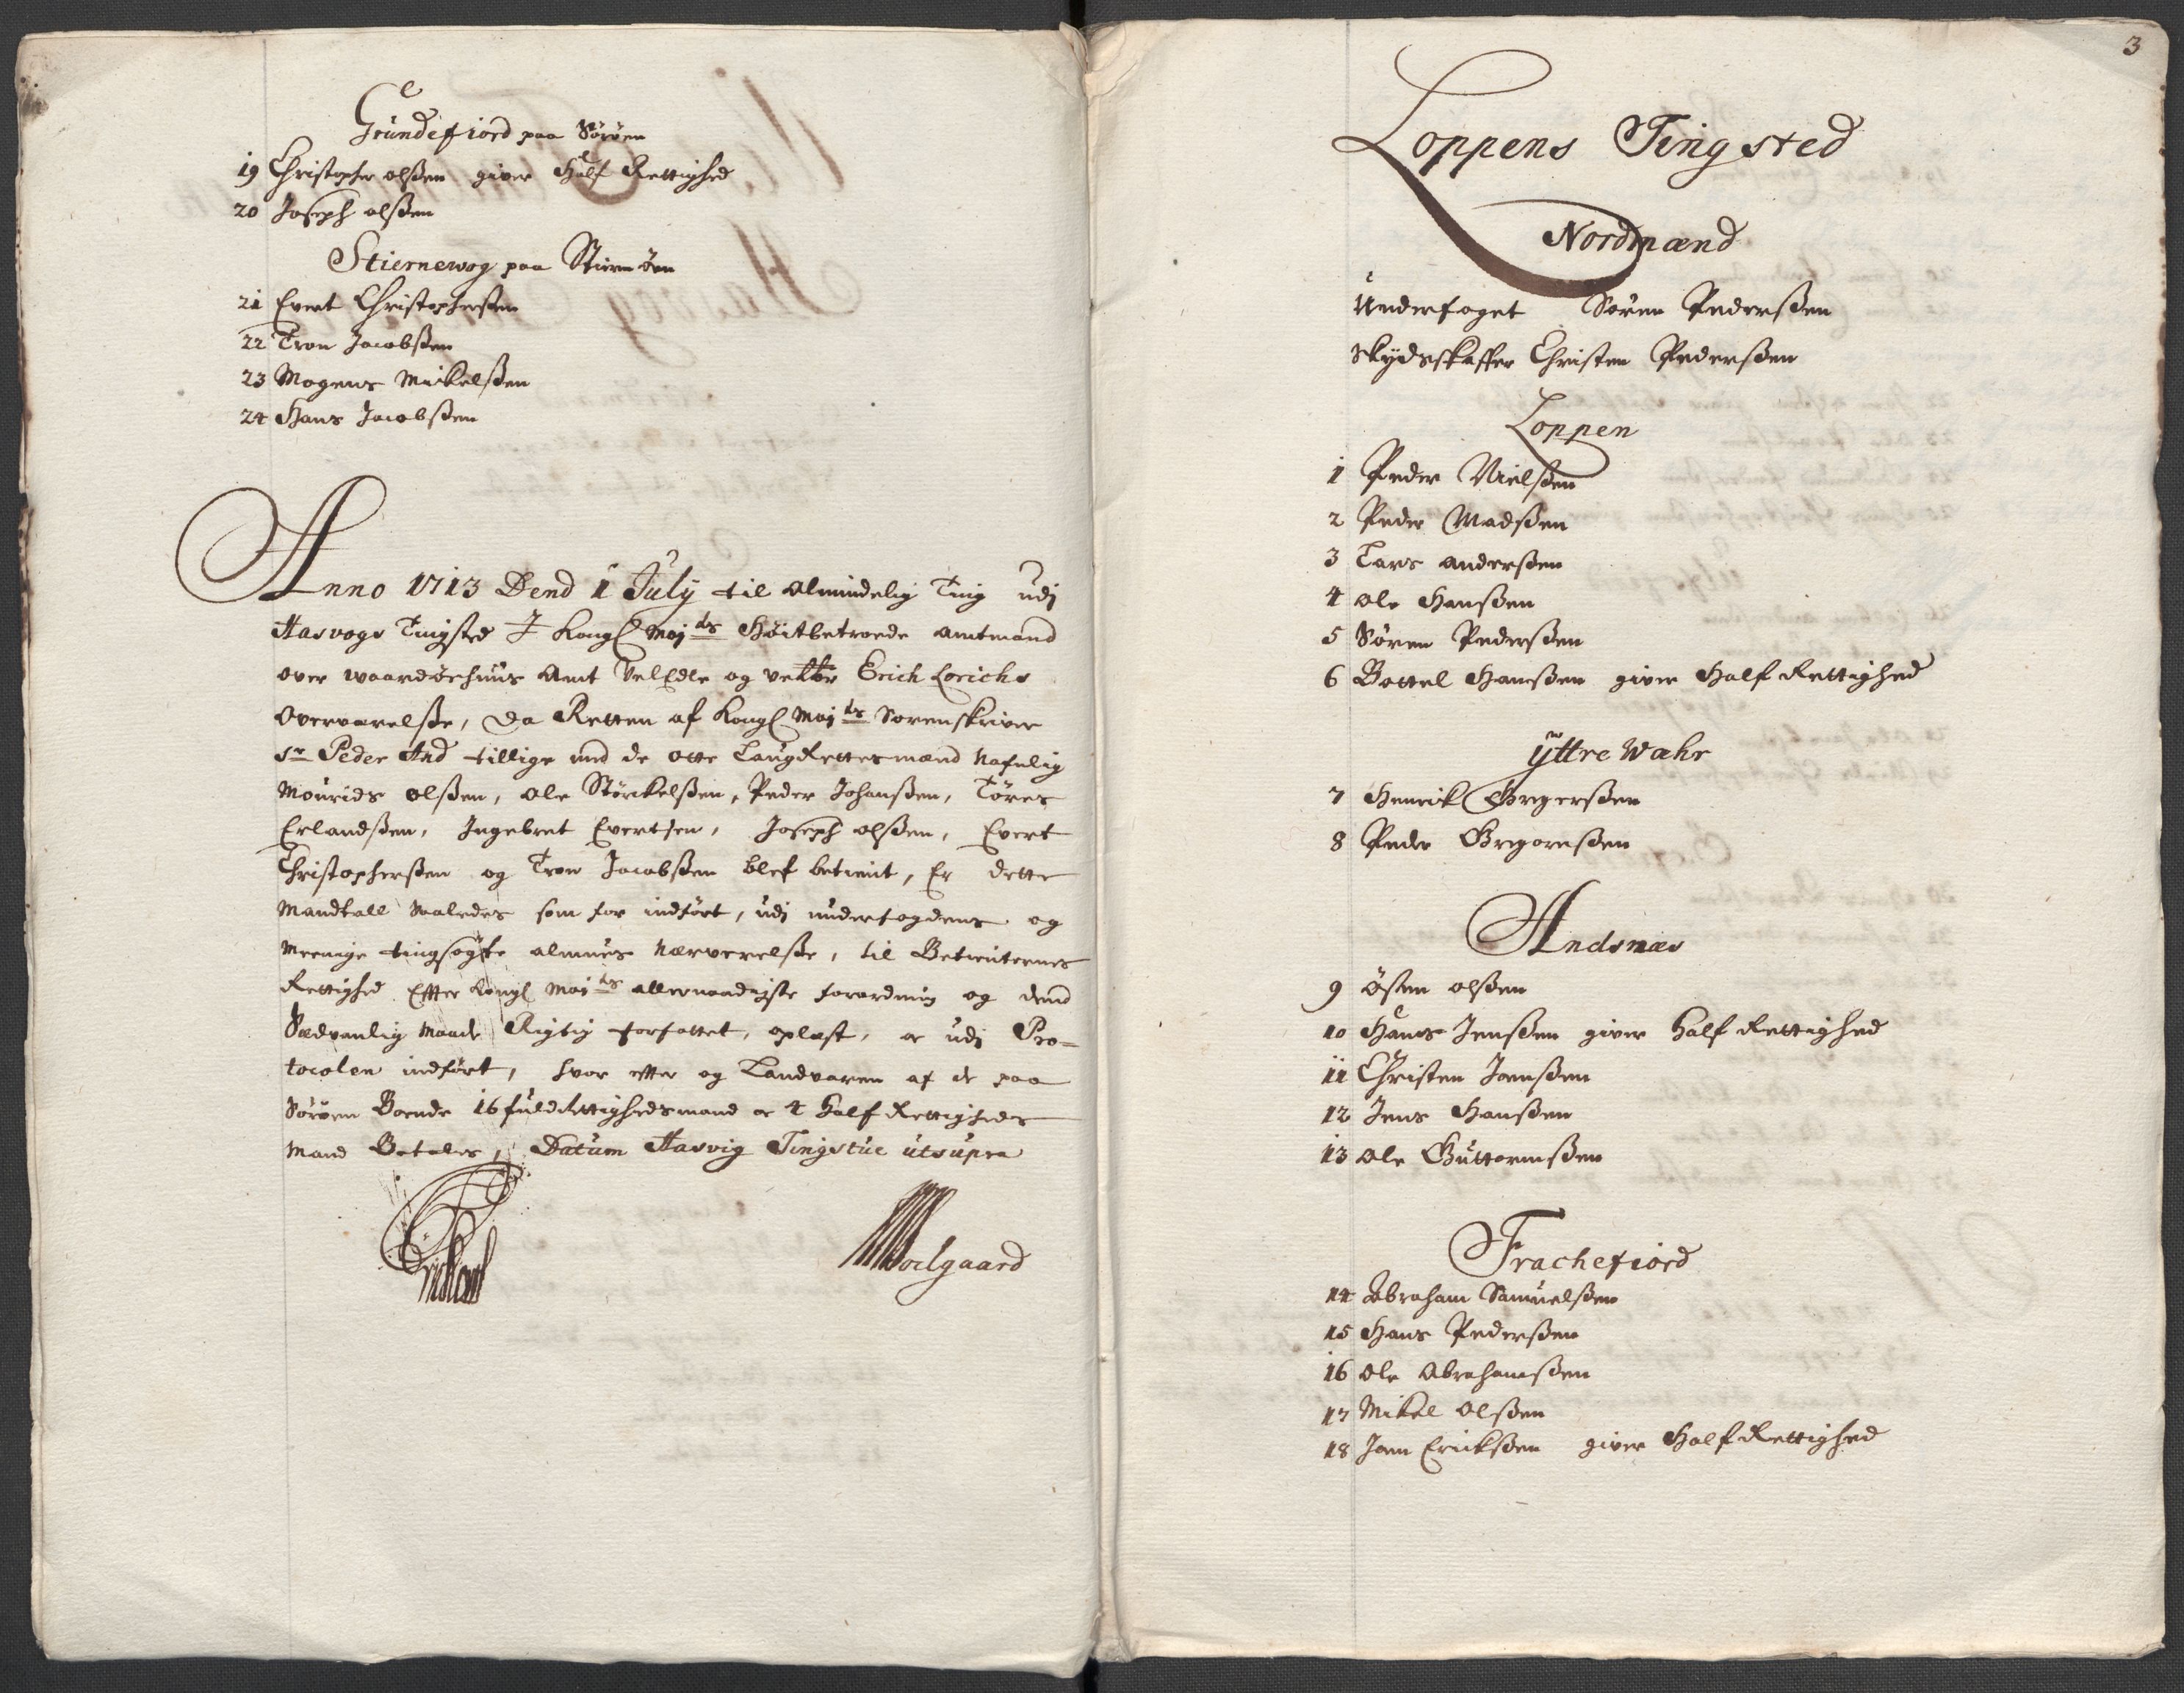 Grundefiord paa Sørøen
19 Christopher olßen giver Half Rettighed
20 Joseph olßen
Stiernewog paa Stiernøen
21 Evert Christophersen
22 Tron Jacobßen
23 Mogens Mickelßen
24 Hans Jacobßen
Anno 1713 Dend 1 July til Almindelig Ting udj
Hasvogs Tingsted J Kongl Majts Høitbetroede Amtmand
over waardøehuus Amt VelEdle og Erich Lorichs
Overværelße, Da Retten af Kongl Majts Sorenskriver
Sr Peder And tillige med de otte LaugRettesmænd Nafnlig
Mourids olßen, Ole Størckelßen, Peder Johanßen, Töres
Erlandßen, Ingebret Evertsen, Joseph olßen, Evert
Christopherßen og Tron Jacobßen blef betient, Er dette
Mandtall Saaledes som for indført, udj underfogdens og
Meenige tingsøgte almues Nærverelße, til Betienternes
Rettighed Effter Kongl Majts allernaadigste forordning og dend
Sædvanlig Maade Rigtig forfattet, oplæst, oc udj Pro-
tocolen indført, hvor effter og Landvaren af de paa
Sørøen Boende 16 fuldRettighedsmænd oc 4 half Rettigheds
Mænd Betales, Datum Hasvig Tingstue ut supra
3
Loppens Tingsted
Nordmænd
Underfoget Søren Pederßen
Skydsskaffer Christen Pederßen
Loppen
1 Peder Nielßen
2 Peder Madßen
3 Lars anderßen
4 Ole Hanßen
5 Søren Pederßen
6 Bottel Hanßen giver Half Rettighed
ÿttre Wahr
7 Henrick Gregerßen
8 Peder Gregorußen
Andsnæs
9 Østen olßen
10 Hans Jenßen giver half Rettighed
11 Christen Joenßen
12 Jens Hanßen
13 Ole Guttormßen
Frachefiord
14 Abraham Samuelßen
15 Hans Pederßen
16 Ole Abrahamßen
17 Mikel Olßen
18 Joen Erickßen giver Half Rettighed